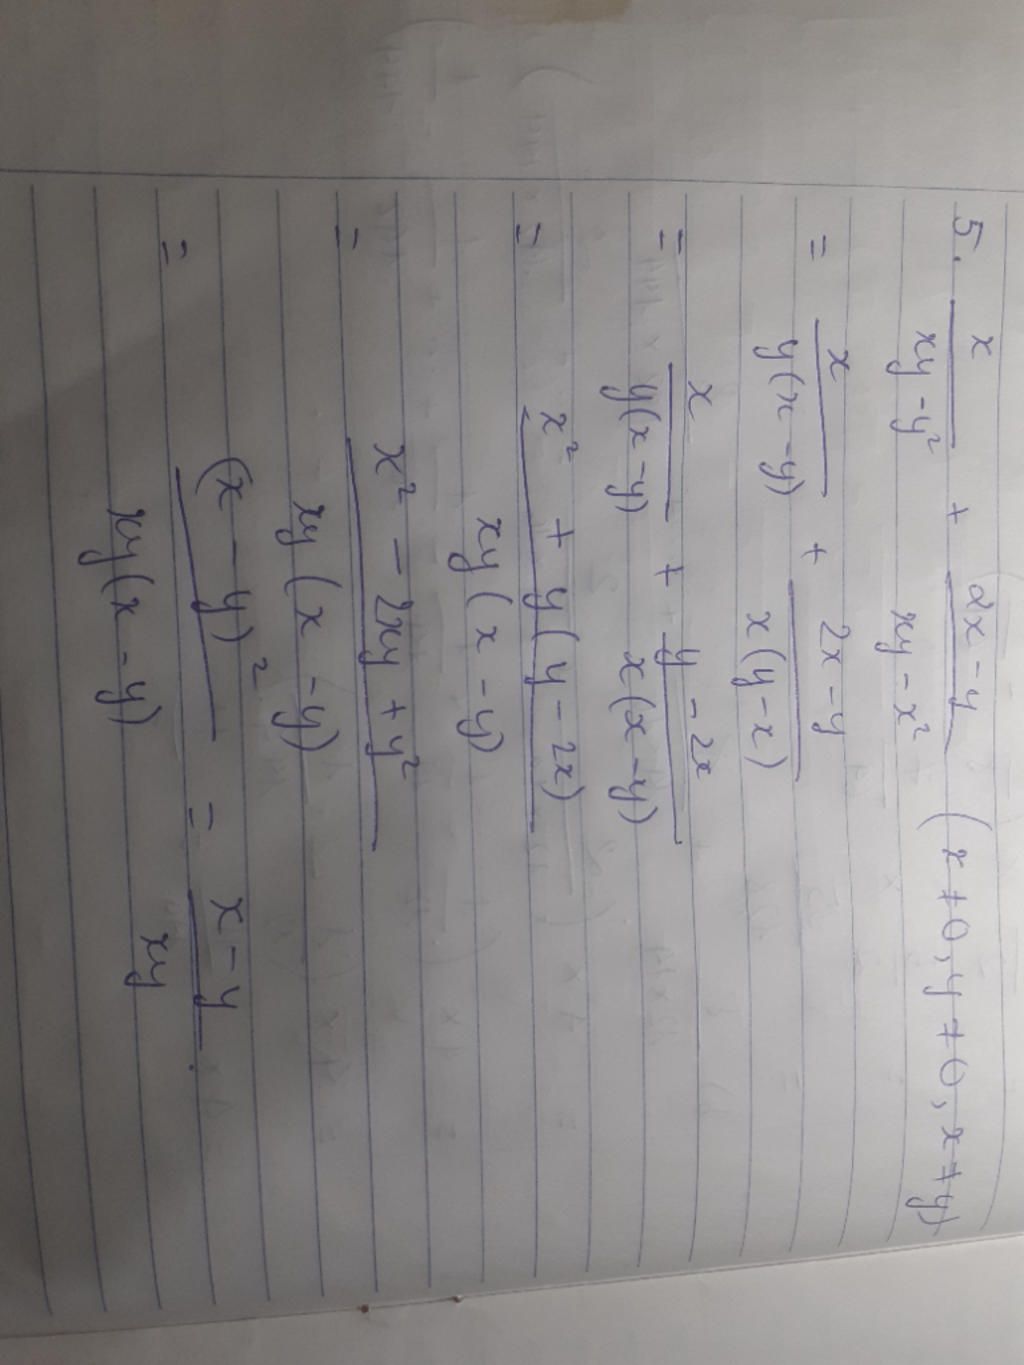 5. x/(xy - y²) + (2x - y)/(xy - x²) (x ≠ 0, y ≠ 0, x ≠ y)
= x/(y(x - y)) + (2x - y)/(x(y - x))
= x/(y(x - y)) + (y - 2x)/(x(x - y))
= (x² + y(y - 2x))/(xy(x - y))
= (x² - 2xy + y²)/(xy(x - y))
= (x - y)²/(xy(x - y)) = (x - y)/(xy).